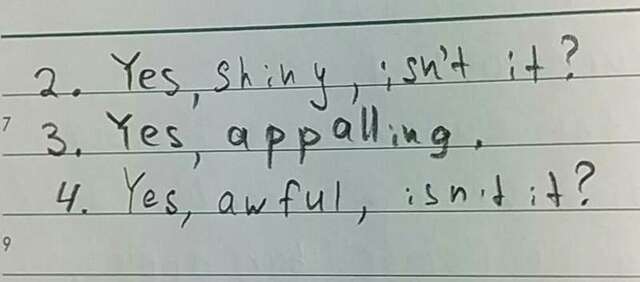 2. Yes, shiny, isn't it?
7
3. Yes, appalling.
4. Yes, awful, isn't it?
9